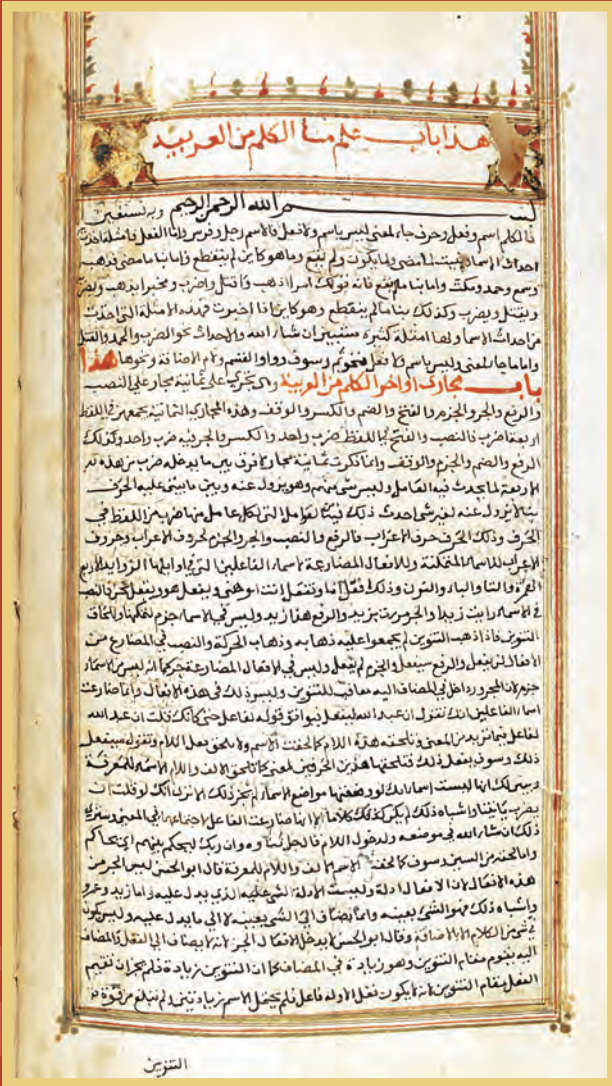 هذا باب علم ما الكلم من العربيه
بسم الله الرحمن الرحيم وبه نستعين
فالكلم اسم وفعل وحرف جاء لمعنى ليس باسم ولا فعل فالاسم رجل وفرس واما الفعل فامثلة اخذت
احداث الاسماء وبنيت لما مضى ولما يكون ولم يقع وما هو كاين لم ينقطع فاما بنا ما مضى فذهب
وسمع وحمد ومكث واما بنا ما لم يقع فانه قولك امرا اذهب واقتل واضرب ومخبرا يذهب ويضرب
ويقتل ويضرب وكذلك بنا ما لم ينقطع وهو كاين اذا اخبرت فهذه الامثلة التي اخذت
من احداث الاسما ولها امثلة كثيرة ستبين ان شاء الله والاحداث نحو الضرب والحمد والقتل
واما ما جاء لمعنى وليس باسم ولا فعل فنحو ثم وسوف وواو القسم ولام الاضافة ونحوها هذا
باب مجاري اواخر الكلم من العربية وهي تجري على ثمانية مجار على النصب
والرفع والجر والجزم والفتح والضم والكسر والوقف وهذه المجاري الثمانية يجمعهن في اللفظ
اربعة اضرب فالنصب والفتح في اللفظ ضرب واحد والكسر والجر فيه ضرب واحد وكذلك
الرفع والضم والجزم والوقف وانما ذكرت ثمانية مجار لافرق بين ما يدخله ضرب من هذه
الاربعة لما يحدث فيه العامل وليس شي منها الا وهو يزول عنه وبين ما يبنى عليه الحرف
بنا لا يزول عنه لغير شي احدث ذلك فيه من العوامل التي لكل عامل منها ضرب من اللفظ في
الحرف وذلك الحرف حرف الاعراب فالرفع والنصب والجر والجزم لحروف الاعراب وحروف
الاعراب للاسماء المتمكنة وللافعال المضارعة لاسماء الفاعلين التي في اوايلها الزوايد الاربع
الهمزة والتا والياء والنون وذلك قولك افعل انا وتفعل انت او هي ويفعل هو ونفعل نحن فالنصب
في الاسماء رايت زيدا والجر مررت بزيد والرفع هذا زيد وليس في الاسماء جزم لتمكنها وللحاق
التنوين فاذا ذهب التنوين لم يجمعوا عليه ذهابه وذهاب الحركة والنصب في المضارع من
الافعال لن يفعل والرفع سيفعل والجزم لم يفعل وليس في الافعال المضارعة جر كما انه ليس في الاسماء
جزم لان المجرور داخل في المضاف اليه معاقب للتنوين وليس ذلك في هذه الافعال وانما ضارعت
اسماء الفاعلين انك تقول ان عبد الله ليفعل فيوافق قوله لفاعل حتى كانك قلت ان عبد الله
لفاعل فيما تريد من المعنى وتلحقه هذه اللام كما لحقت الاسم ولا تلحق بفعل اللام وتقول سيفعل
ذلك وسوف يفعل ذلك فتلحقها هذين الحرفين لمعنى كما تلحق الالف واللام الاسماء للمعرفة
ويبين لك انها ليست اسما انك لو وضعتها مواضع الاسماء لم يجز ذلك الا ترى انك لو قلت ان
يضرب ياتينا واشباه ذلك لم يكن كلاما الا انها ضارعت الفاعل لاجتماعهما في المعنى وسترى
ذلك ان شاء الله في موضعه ولدخول اللام قال الله جل ثناوه وان ربك ليحكم بينهم اي لحاكم
ولما لحقها من السين وسوف كما لحقت الاسم الالف واللام للمعرفة قال ابو الحسن ليس الجر من
هذه الافعال لان الافعال ادلة وليست الادلة الشي عليه الذي يدل عليه واما زيد وعمرو
واشباه ذلك فهو الشي بعينه وانما يضاف الى الشي بعينه لا الى ما يدل عليه وليس يكون
في شي من الكلام الا بالاضافة وقال ابو الحسن لا يدخل الافعال الجر لانه لا يضاف الى الفعل والمضاف
اليه يقوم مقام التنوين وهو زيادة في المضاف كما ان التنوين زيادة فلم يجز ان تقيم
الفعل مقام التنوين لانه لا يكون فعل الا وله فاعل فلم يحتمل الاسم زيادتين ولم تبلغ من قوة
التنوين